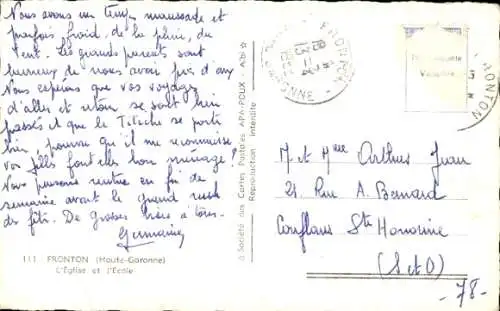 Nous avons un temps maussade et
parfois froid, de la pluie, du
vent. Les grands parents sont
heureux de nous avoir près d'eux
Nous espérons que vos voyages
d'aller et retour se sont bien
passés et que le Titsche se porte
bien, pourvu qu'il me reconnaisse
vos filles font elles bon ménage?
Nous pensons rentrer en fin de
semaine avant le grand rush
des fêtes. De grosses bises à tous.
Germaine
111 FRONTON (Haute-Garonne)
L'Eglise et l'Ecole
Société des Cartes Postales APA-POUX - Albi
Reproduction interdite
FRONTON
M et Mme Arthus Jean
21 Rue A. Bernard
Conflans Ste Honorine
(S et O)
-78-